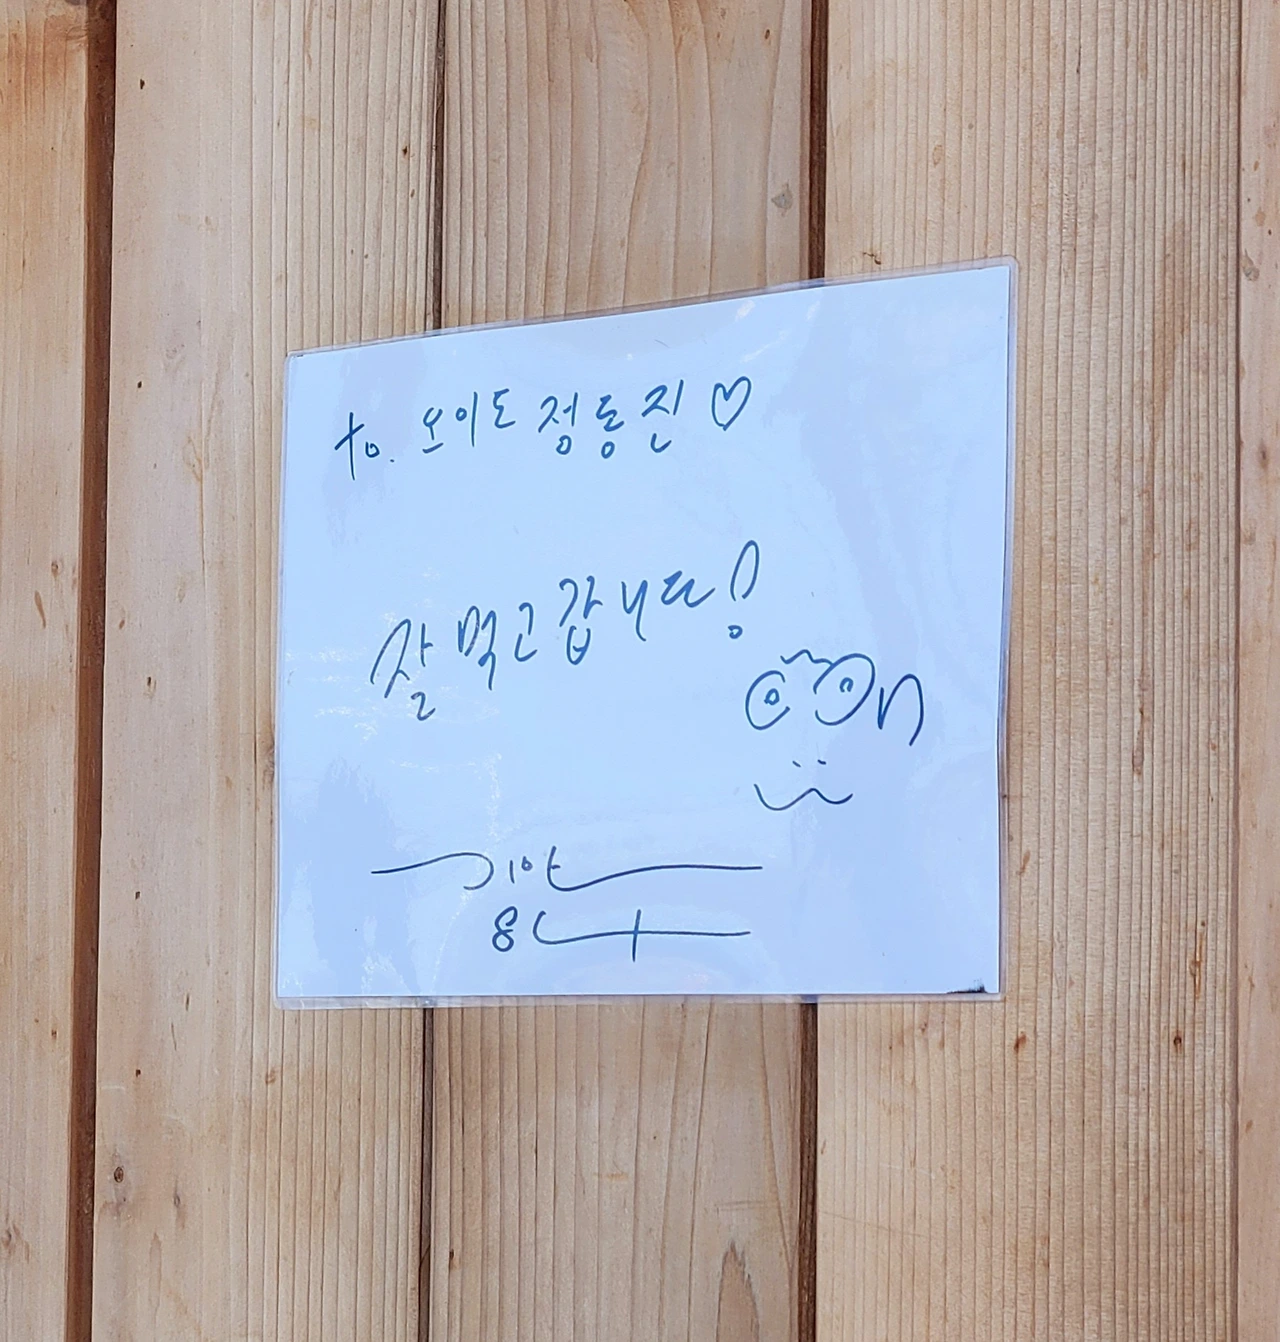 to. 오이도 정동진 ♡
잘 먹고 갑니다!